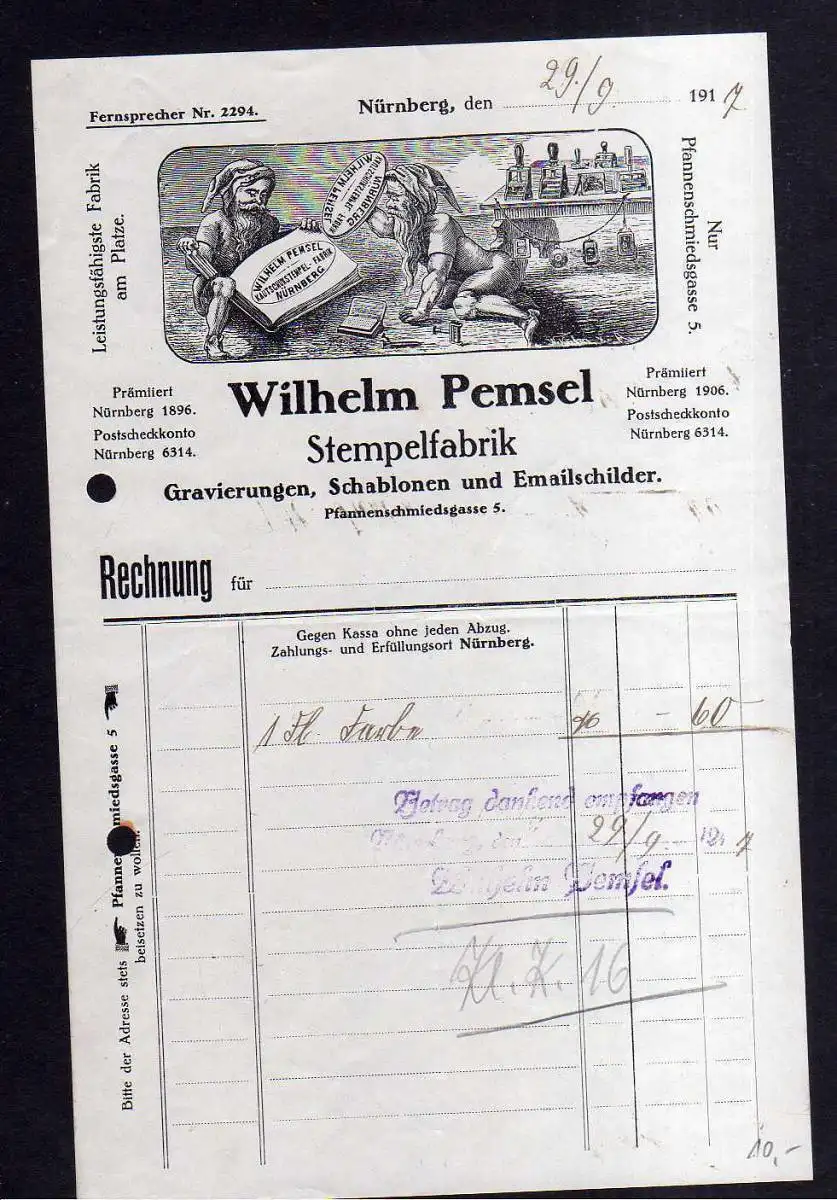 Fernsprecher Nr. 2294.
Nürnberg, den 29/9 1917
Leistungsfähigste Fabrik
am Platze.
WILHELM PEMSEL
KAUTSCHUKSTEMPEL-FABRIK
NÜRNBERG
WILHELM PEMSEL
KAUTSCHUKSTEMPEL-FABRIK
NÜRNBERG
Nur
Pfannenschmiedsgasse 5.
Prämiiert
Nürnberg 1896.
Postscheckkonto
Nürnberg 6314.
Wilhelm Pemsel
Stempelfabrik
Prämiiert
Nürnberg 1906.
Postscheckkonto
Nürnberg 6314.
Gravierungen, Schablonen und Emailschilder.
Pfannenschmiedsgasse 5.
Rechnung für
Gegen Kassa ohne jeden Abzug.
Zahlungs- und Erfüllungsort Nürnberg.
1 Fl. Farbe - 60
Betrag dankend empfangen
Nürnberg, den 29/9 1917
Wilhelm Pemsel.
Kl. K. 16
Bitte der Adresse stets Pfannenschmiedsgasse 5
beisetzen zu wollen.
10,-